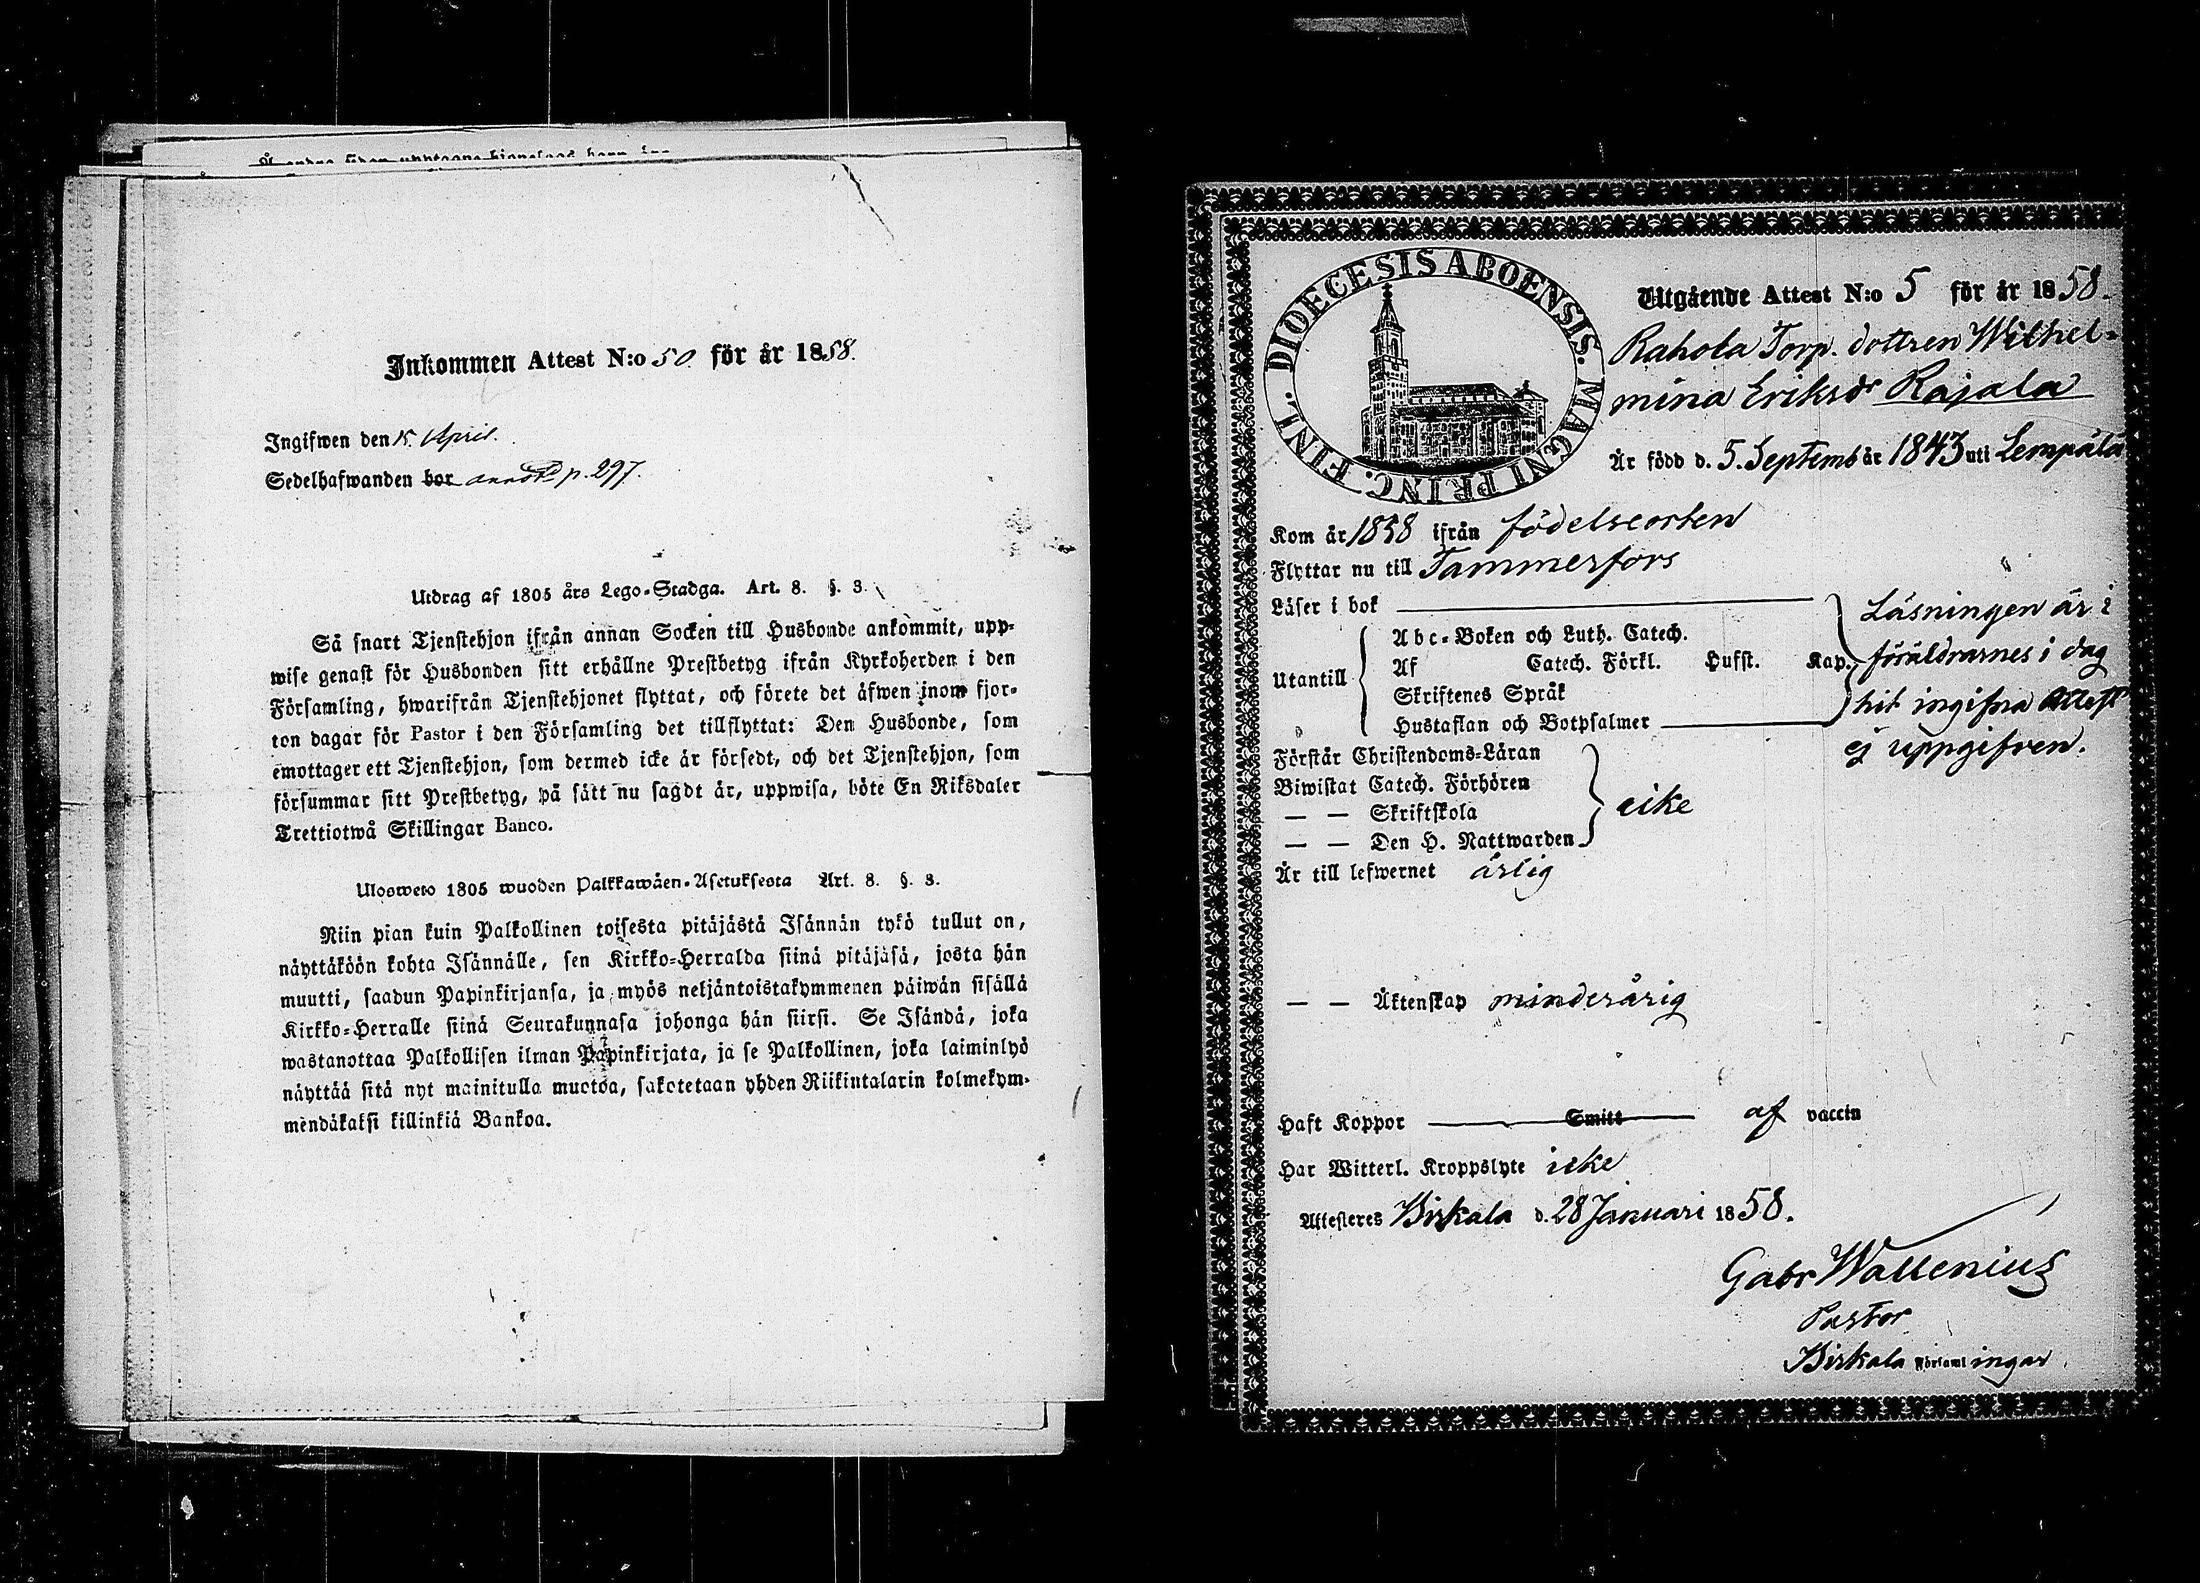 Inkommen Attest N:o 50 för år 1858.
Ingifwen den 15. April.
Sedelhafwanden bor annot. p. 297.
Utdrag af 1805 års Lego-Stadga. Art. 8. §. 3.
Så snart Tjenstehjon ifrån annan Socken till Husbonde ankommit, upp-
wise genast för Husbonden sitt erhållne Prestbetyg ifrån Kyrkoherden i den
Församling, hwarifrån Tjenstehjonet flyttat, och förete det äfwen inom fjor-
ton dagar för Pastor i den Församling det tillflyttat: Den Husbonde, som
emottager ett Tjenstehjon, som dermed icke är försedt, och det Tjenstehjon, som
försummar sitt Prestbetyg, på sätt nu sagdt är, uppwisa, böte En Riksdaler
Trettiotwå Skillingar Banco.
Ulosweto 1805 wuoden Palkkawäen-Asetuksesta Art. 8. §. 3.
Niin pian kuin Palkollinen toisesta pitäjästä Isännän tykö tullut on,
näyttäköön kohta Isännälle, sen Kirkko-Herralda siinä pitäjäsä, josta hän
muutti, saadun Papinkirjansa, ja myös neljäntoistakymmenen päiwän sisällä
Kirkko-Herralle siinä Seurakunnasa johonga hän siirsi. Se Isändä, joka
wastanottaa Palkollisen ilman Papinkirjata, ja se Palkollinen, joka laiminlyö
näyttää sitä nyt mainitulla muotoa, sakotetaan yhden Riikintalarin kolmekym-
mendäkaksi killinkiä Bankoa.
DIOECESIS ABOENSIS. MAGNI PRINC. FINL.
Utgående Attest N:o 5 för år 1858.
Rahola Torp. dottren Wilhel-
mina Eriksdr Rajala
Är född d. 5. Septemb år 1843 uti Lempäla
Kom år 1858 ifrån födelseorten
Flyttar nu till Tammerfors
Läser i bok
Utantill
Abc-Boken och Luth. Catech.
Af Catech. Förkl. Hufst. Kap.
Skriftenes Språk
Hustaflan och Botpsalmer
Läsningen är i
föräldrarnes i dag
hit ingifna Attest
ej uppgifven.
Förstår Christendoms-Läran
Biwistat Catech. Förhören
— — Skriftskola
— — Den H. Nattwarden
icke
Är till lefwernet ärlig
— — Äktenskap minderårig
Haft Koppor Smitt af vaccin
Har Witterl. Kroppslyte icke
Attesteres Birkala d. 28 Januari 1858.
Gabr Wallenius
Pastor
Birkala Församlingar